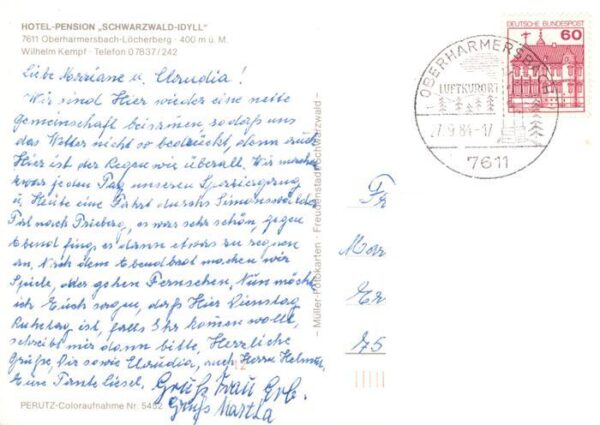 HOTEL-PENSION „SCHWARZWALD-IDYLL"
7611 Oberharmersbach-Löcherberg · 400 m ü. M.
Wilhelm Kempf · Telefon 07837/242
Liebe Mariane u. Claudia!
Wir sind Hier wieder eine nette
Gemeinschaft beisamen sodaß uns
das Wetter nicht so bedrückt, denn auch
Hier ist der Regen wie überall. Wir machen
zwar jeden Tag unseren Spaziergang
u. Heute eine Fahrt durchs Simonswälder
Tal nach Triberg, es war sehr schön gegen
Abend fing es dann etwas zu regnen
an. Nach dem Abendbrot machen wir
Spiele, oder gehen Fernsehen. Nun möcht
ich Euch sagen, daß Hier Dienstag
Ruhetag ist, falls Ihr komen wollt,
schreibt mir dann bitte. Herzliche
Grüße, Dir sowie Claudia, auch Herrn Helmut
Eure Tante Liesel. Gruß Frau Erb.
Gruß Martha
PERUTZ-Coloraufnahme Nr. 5452
– Müller Fotokarten · Freudenstadt/Schwarzwald –
DEUTSCHE BUNDESPOST
60
OBERHARMERSBACH
LUFTKURORT
27.9.84-17
7611
Fr
Mar
Er
75